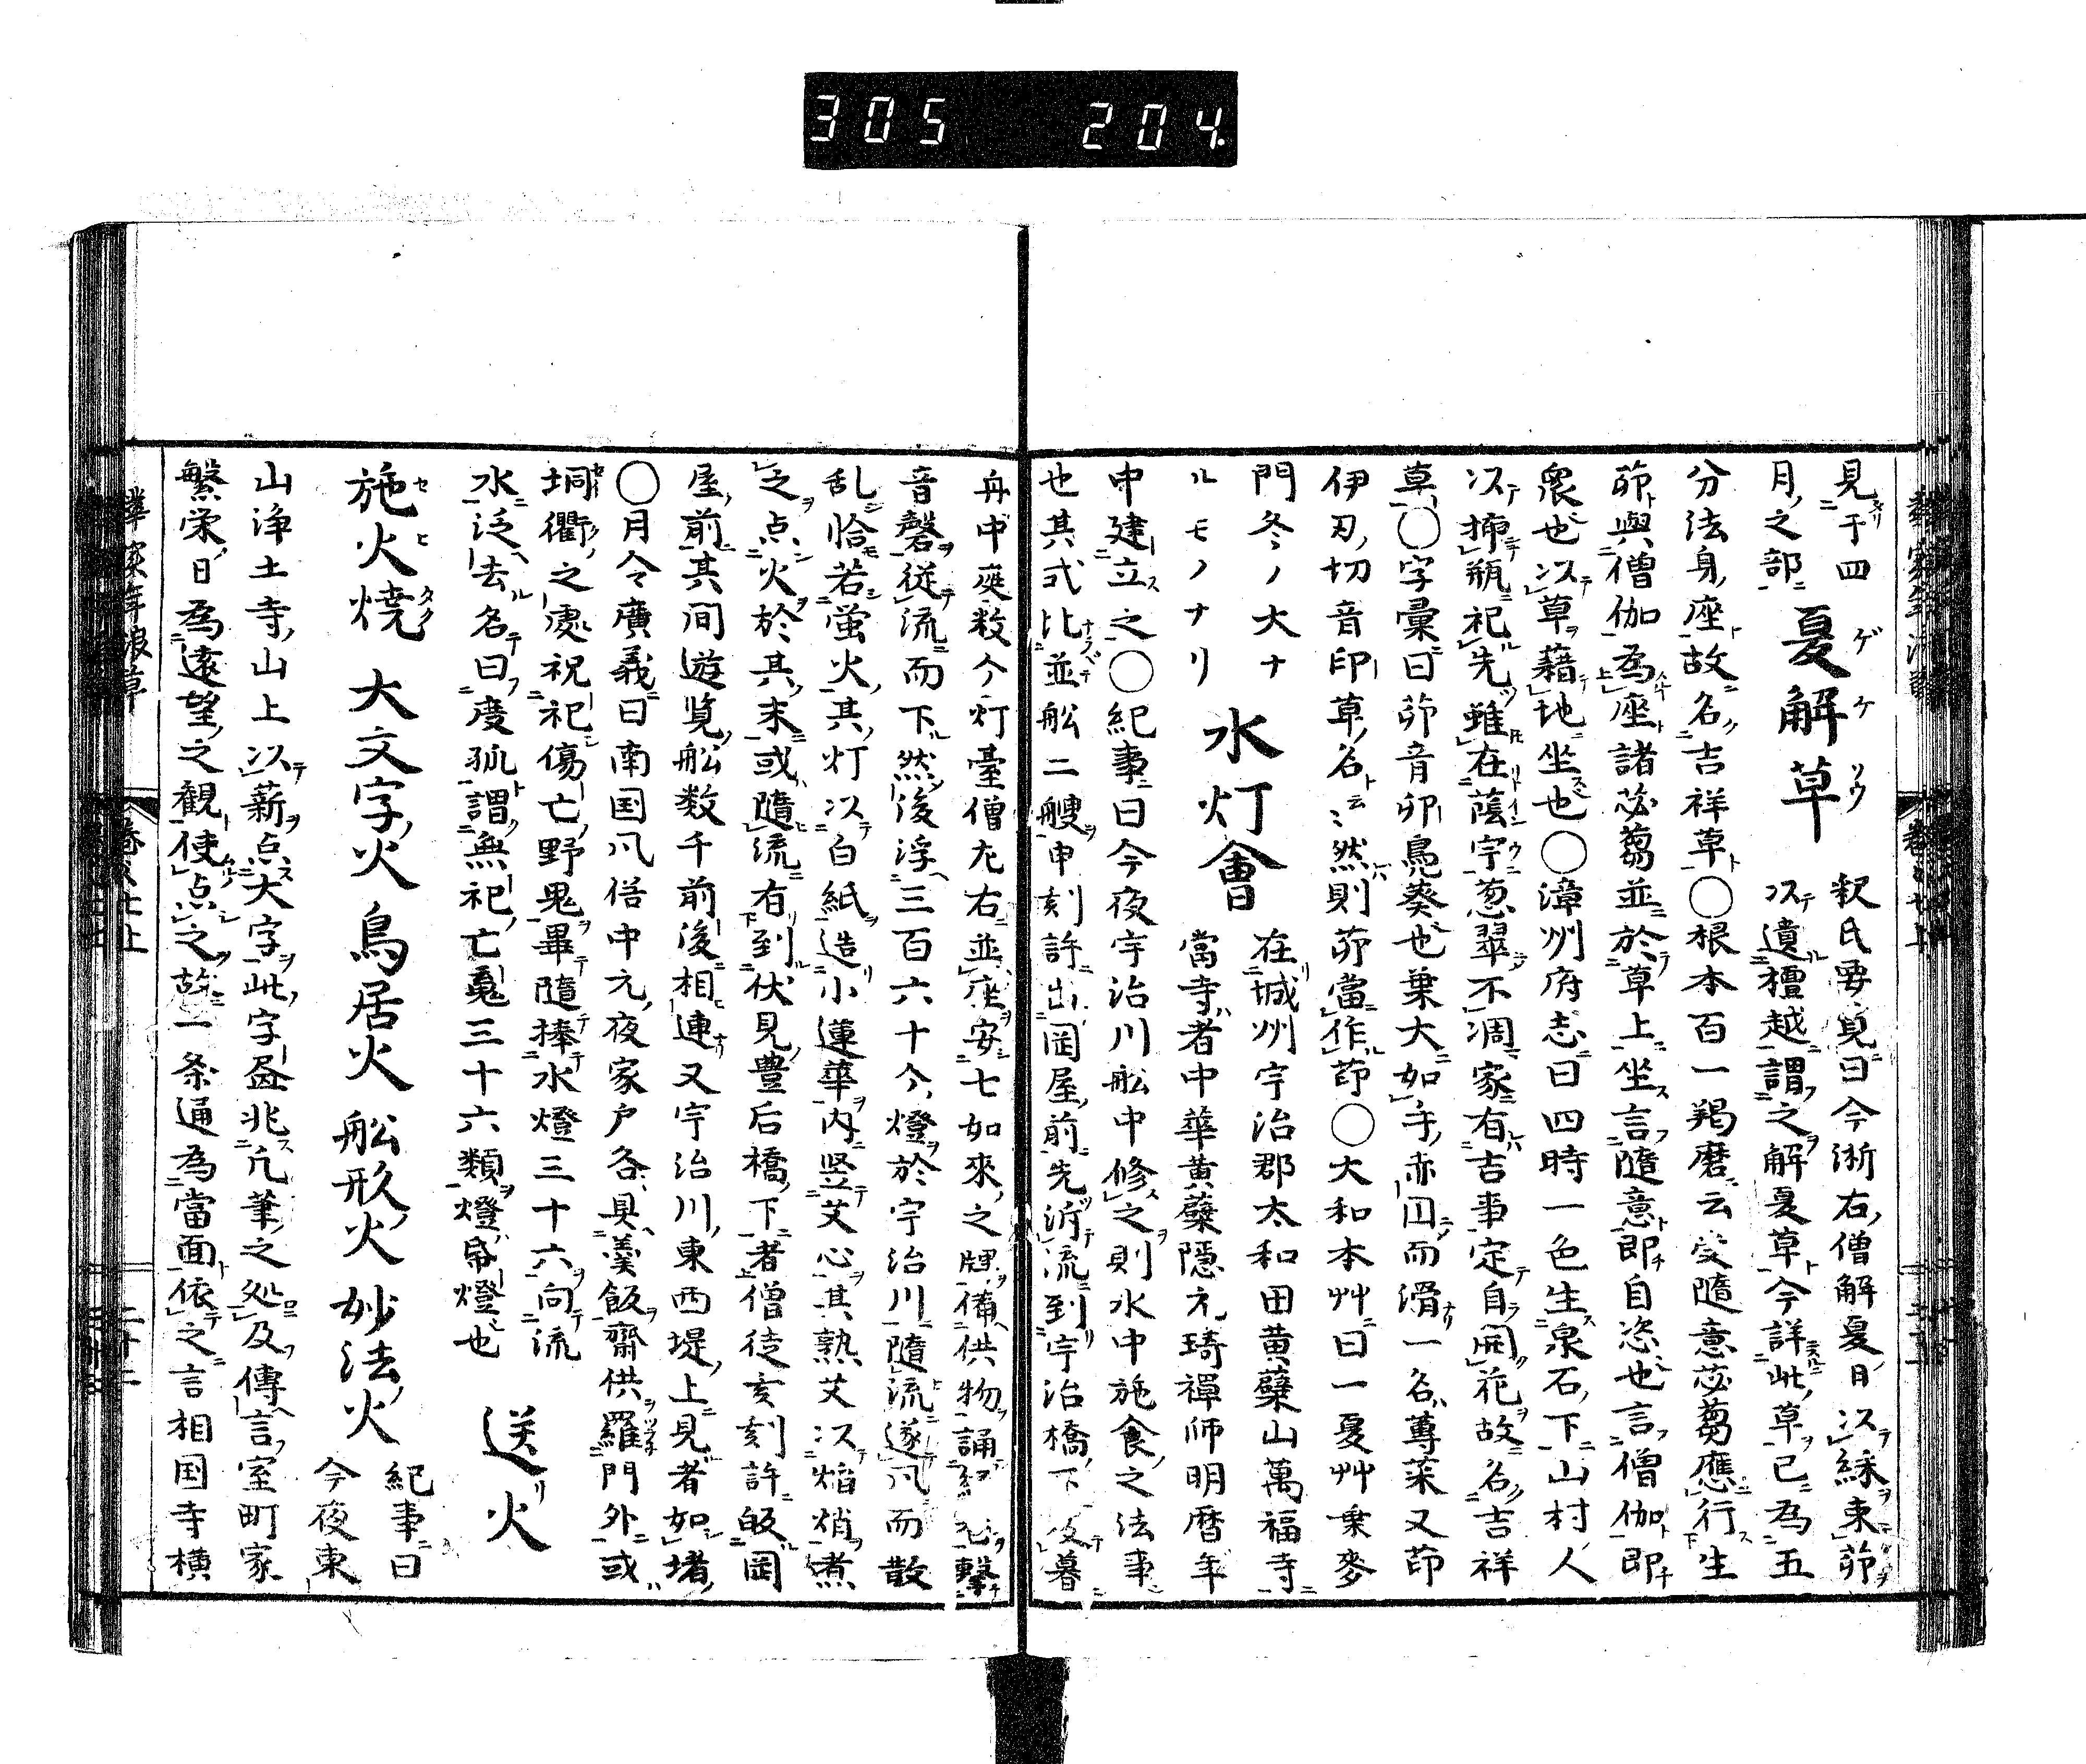 305 204.
見于四
月之部
夏解草
釈氏要覧曰今淅右僧解夏日以綵束茆
以遺檀越謂之解夏草今詳此草已為五
分法身座故名吉祥草〇根本百一羯磨云受隨意苾蒭應行生
茆與僧伽為座諸苾蒭並於草上坐言隨意即自恣也言僧伽即
衆也以草藉地坐也〇漳州府志曰四時一色生泉石下山村人
以挿瓶祀先雖在蔭宇葱翠不凋家有吉事定自開花故名吉祥
草〇字彙曰茆音卯鳧葵也葉大如手赤囘而滑一名蓴菜又茆
伊刃切音印草名云云然則茆當作茚〇大和本艸曰一夏艸乗麥
門冬ノ大ナ
ルモノナリ
水灯會
在城州宇治郡太和田黄蘗山萬福寺
當寺者中華黄蘗隱元琦禪師明暦年
中建立之〇紀事曰今夜宇治川舩中修之則水中施食之法事
也其式比並舩二艘申刻許出岡屋前先泝流到宇治橋下及暮
舟中庭数个灯臺僧左右並座安七如來之牌備供物誦 擊
音磬従流而下然後浮三百六十个燈於宇治川隨流遂风而散
乱恰若蛍火其灯以白紙造小蓮華内竖艾心其熟艾以焔焇煮
之点火於其末或隨流有到伏見豊后橋下者僧徒亥刻許皈岡
屋前其間遊覧舩数千前後相連又宇治川東西堤上見者如堵
〇月令廣義曰南国风俗中元夜家戸各具羹飯齋供羅門外或
垌衢之處祝祀傷亡野鬼畢隨捧水燈三十六向流
水泛去名曰度孤謂無祀亡鬼三十六類燈帋燈也
送リ火
施火焼 大文字火 鳥居火 舩形火 妙法火
紀事曰
今夜東
山浄土寺山上以薪点大字此字畫兆凢筆之処及傳言室町家
繁栄日為遠望之觀使点之故一条通為當面依之言相国寺横